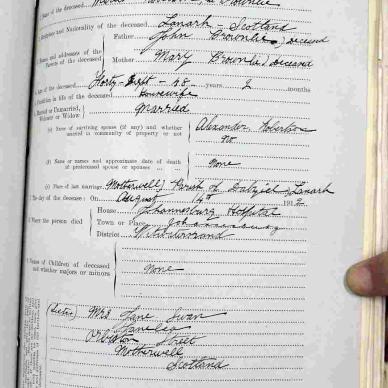 of the deceased
Birthplace and Nationality of the deceased Lanark - Scotland
Names and addresses of the Parents of the deceased
Father John Brownlie } Deceased
Mother Mary Brownlie } deceased
Age of the deceased Forty-Eight - 48 years 2 months
Condition in life of the deceased Housewife
Married or Unmarried, Widower or Widow Married
(a) Name of surviving spouse (if any) and whether married in community of property or not
Alexander Robertson
no
(b) Name or names and approximate date of death of predeceased spouse or spouses ... None
(c) Place of last marriage Motherwell, Parish of Dalziel - Lanark
The day of the decease: On August 14th 19
Where the person died
House Johannesburg Hospital
Town or Place Johannesburg
District Witwatersrand
Names of Children of deceased and whether majors or minors
None
(Sister) Mrs Jane Swan
Street
Motherwell
Scotland